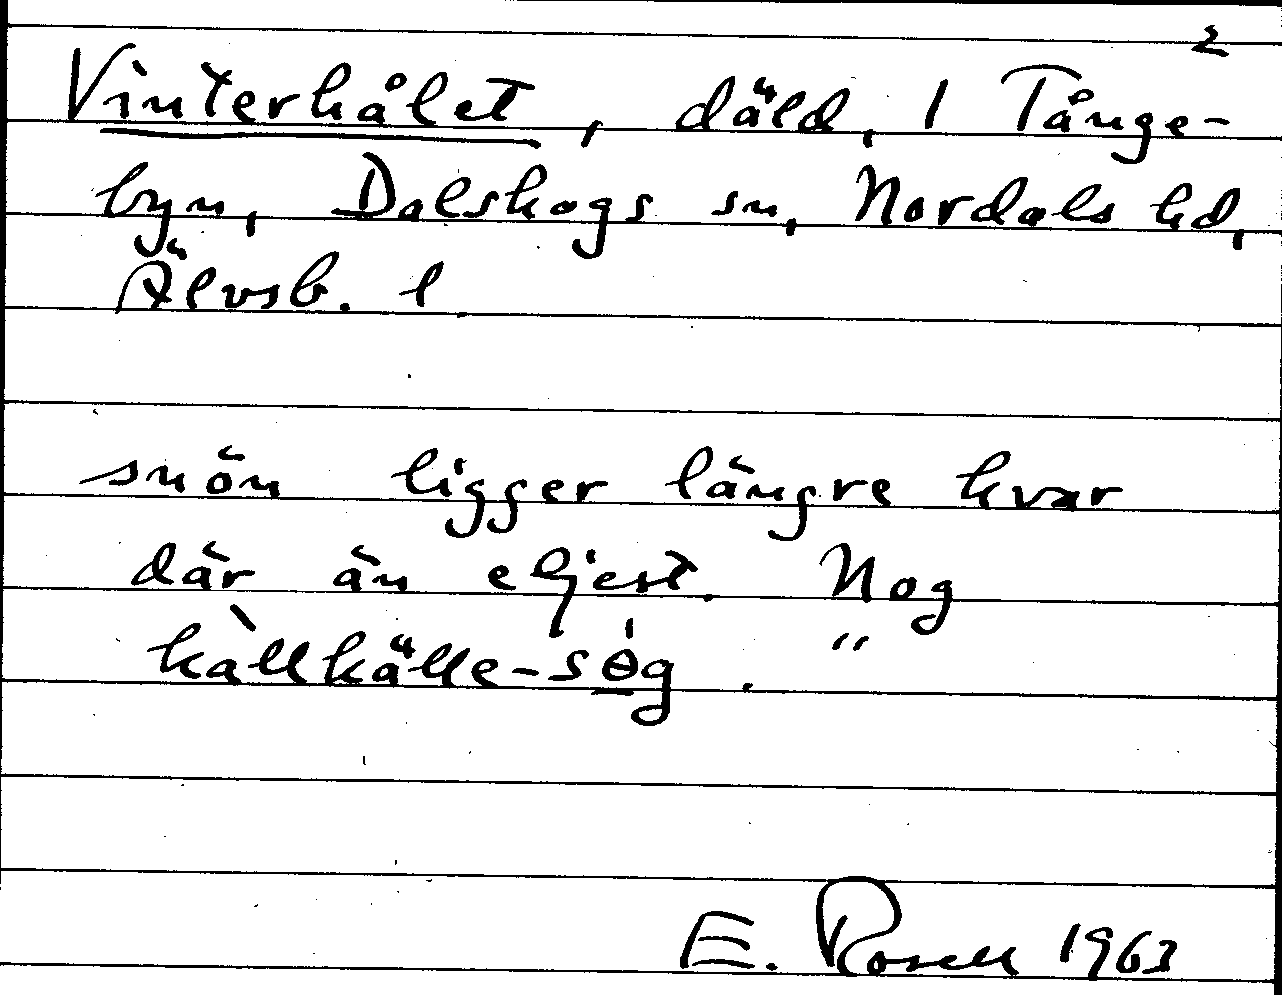 2
Vinterhålet, däld, 1 Tånge-
byn, Dalskogs sn, Nordals hd,
Älvsb. l
snön ligger längre kvar
där än eljest. Nog
källkälle-sög. "
E. Rosell 1963